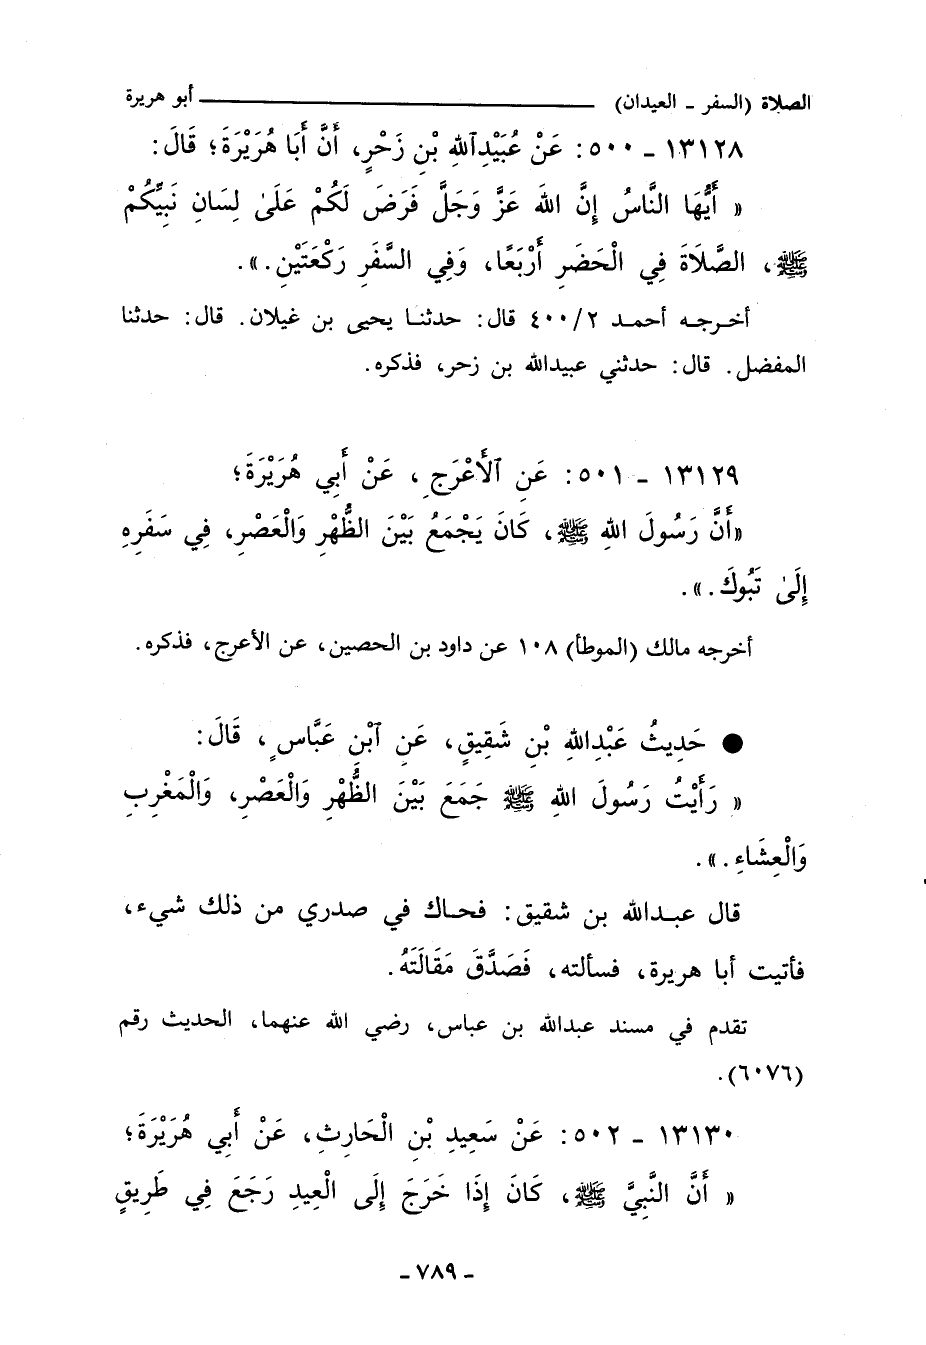 الصلاة (السفر - العيدان) ــــــــــــــــــــــــــــــ أبو هريرة
١٣١٢٨ - ٥٠٠: عَنْ عُبَيْدِٱللهِ بْنِ زَحْرٍ، أَنَّ أَبَا هُرَيْرَةَ؛ قَالَ:
« أَيُّهَا النَّاسُ إِنَّ اللهَ عَزَّ وَجَلَّ فَرَضَ لَكُمْ عَلَىٰ لِسَانِ نَبِيِّكُمْ
ﷺ، الصَّلَاةَ فِي الْحَضَرِ أَرْبَعًا، وَفِي السَّفَرِ رَكْعَتَيْنِ.».
أخرجه أحمد ٤٠٠/٢ قال: حدثنا يحيى بن غيلان. قال: حدثنا
المفضل. قال: حدثني عبيدالله بن زحر، فذكره.
١٣١٢٩ - ٥٠١: عَنِ ٱلْأَعْرَجِ، عَنْ أَبِي هُرَيْرَةَ؛
«أَنَّ رَسُولَ اللهِ ﷺ، كَانَ يَجْمَعُ بَيْنَ الظُّهْرِ وَالْعَصْرِ، فِي سَفَرِهِ
إِلَىٰ تَبُوكَ.».
أخرجه مالك (الموطأ) ١٠٨ عن داود بن الحصين، عن الأعرج، فذكره.
● حَدِيثُ عَبْدِاللهِ بْنِ شَقِيقٍ، عَنِ ٱبْنِ عَبَّاسٍ، قَالَ:
« رَأَيْتُ رَسُولَ اللهِ ﷺ جَمَعَ بَيْنَ الظُّهْرِ وَالْعَصْرِ، وَالْمَغْرِبِ
وَالْعِشَاءِ.».
قال عبدالله بن شقيق: فحاك في صدري من ذلك شيء،
فأتيت أبا هريرة، فسألته، فَصَدَّقَ مَقَالَتَهُ.
تقدم في مسند عبدالله بن عباس، رضي الله عنهما، الحديث رقم
(٦٠٧٦).
١٣١٣٠ - ٥٠٢: عَنْ سَعِيدِ بْنِ الْحَارِثِ، عَنْ أَبِي هُرَيْرَةَ؛
« أَنَّ النَّبِيَّ ﷺ، كَانَ إِذَا خَرَجَ إِلَى الْعِيدِ رَجَعَ فِي طَرِيقٍ
- ٧٨٩ -